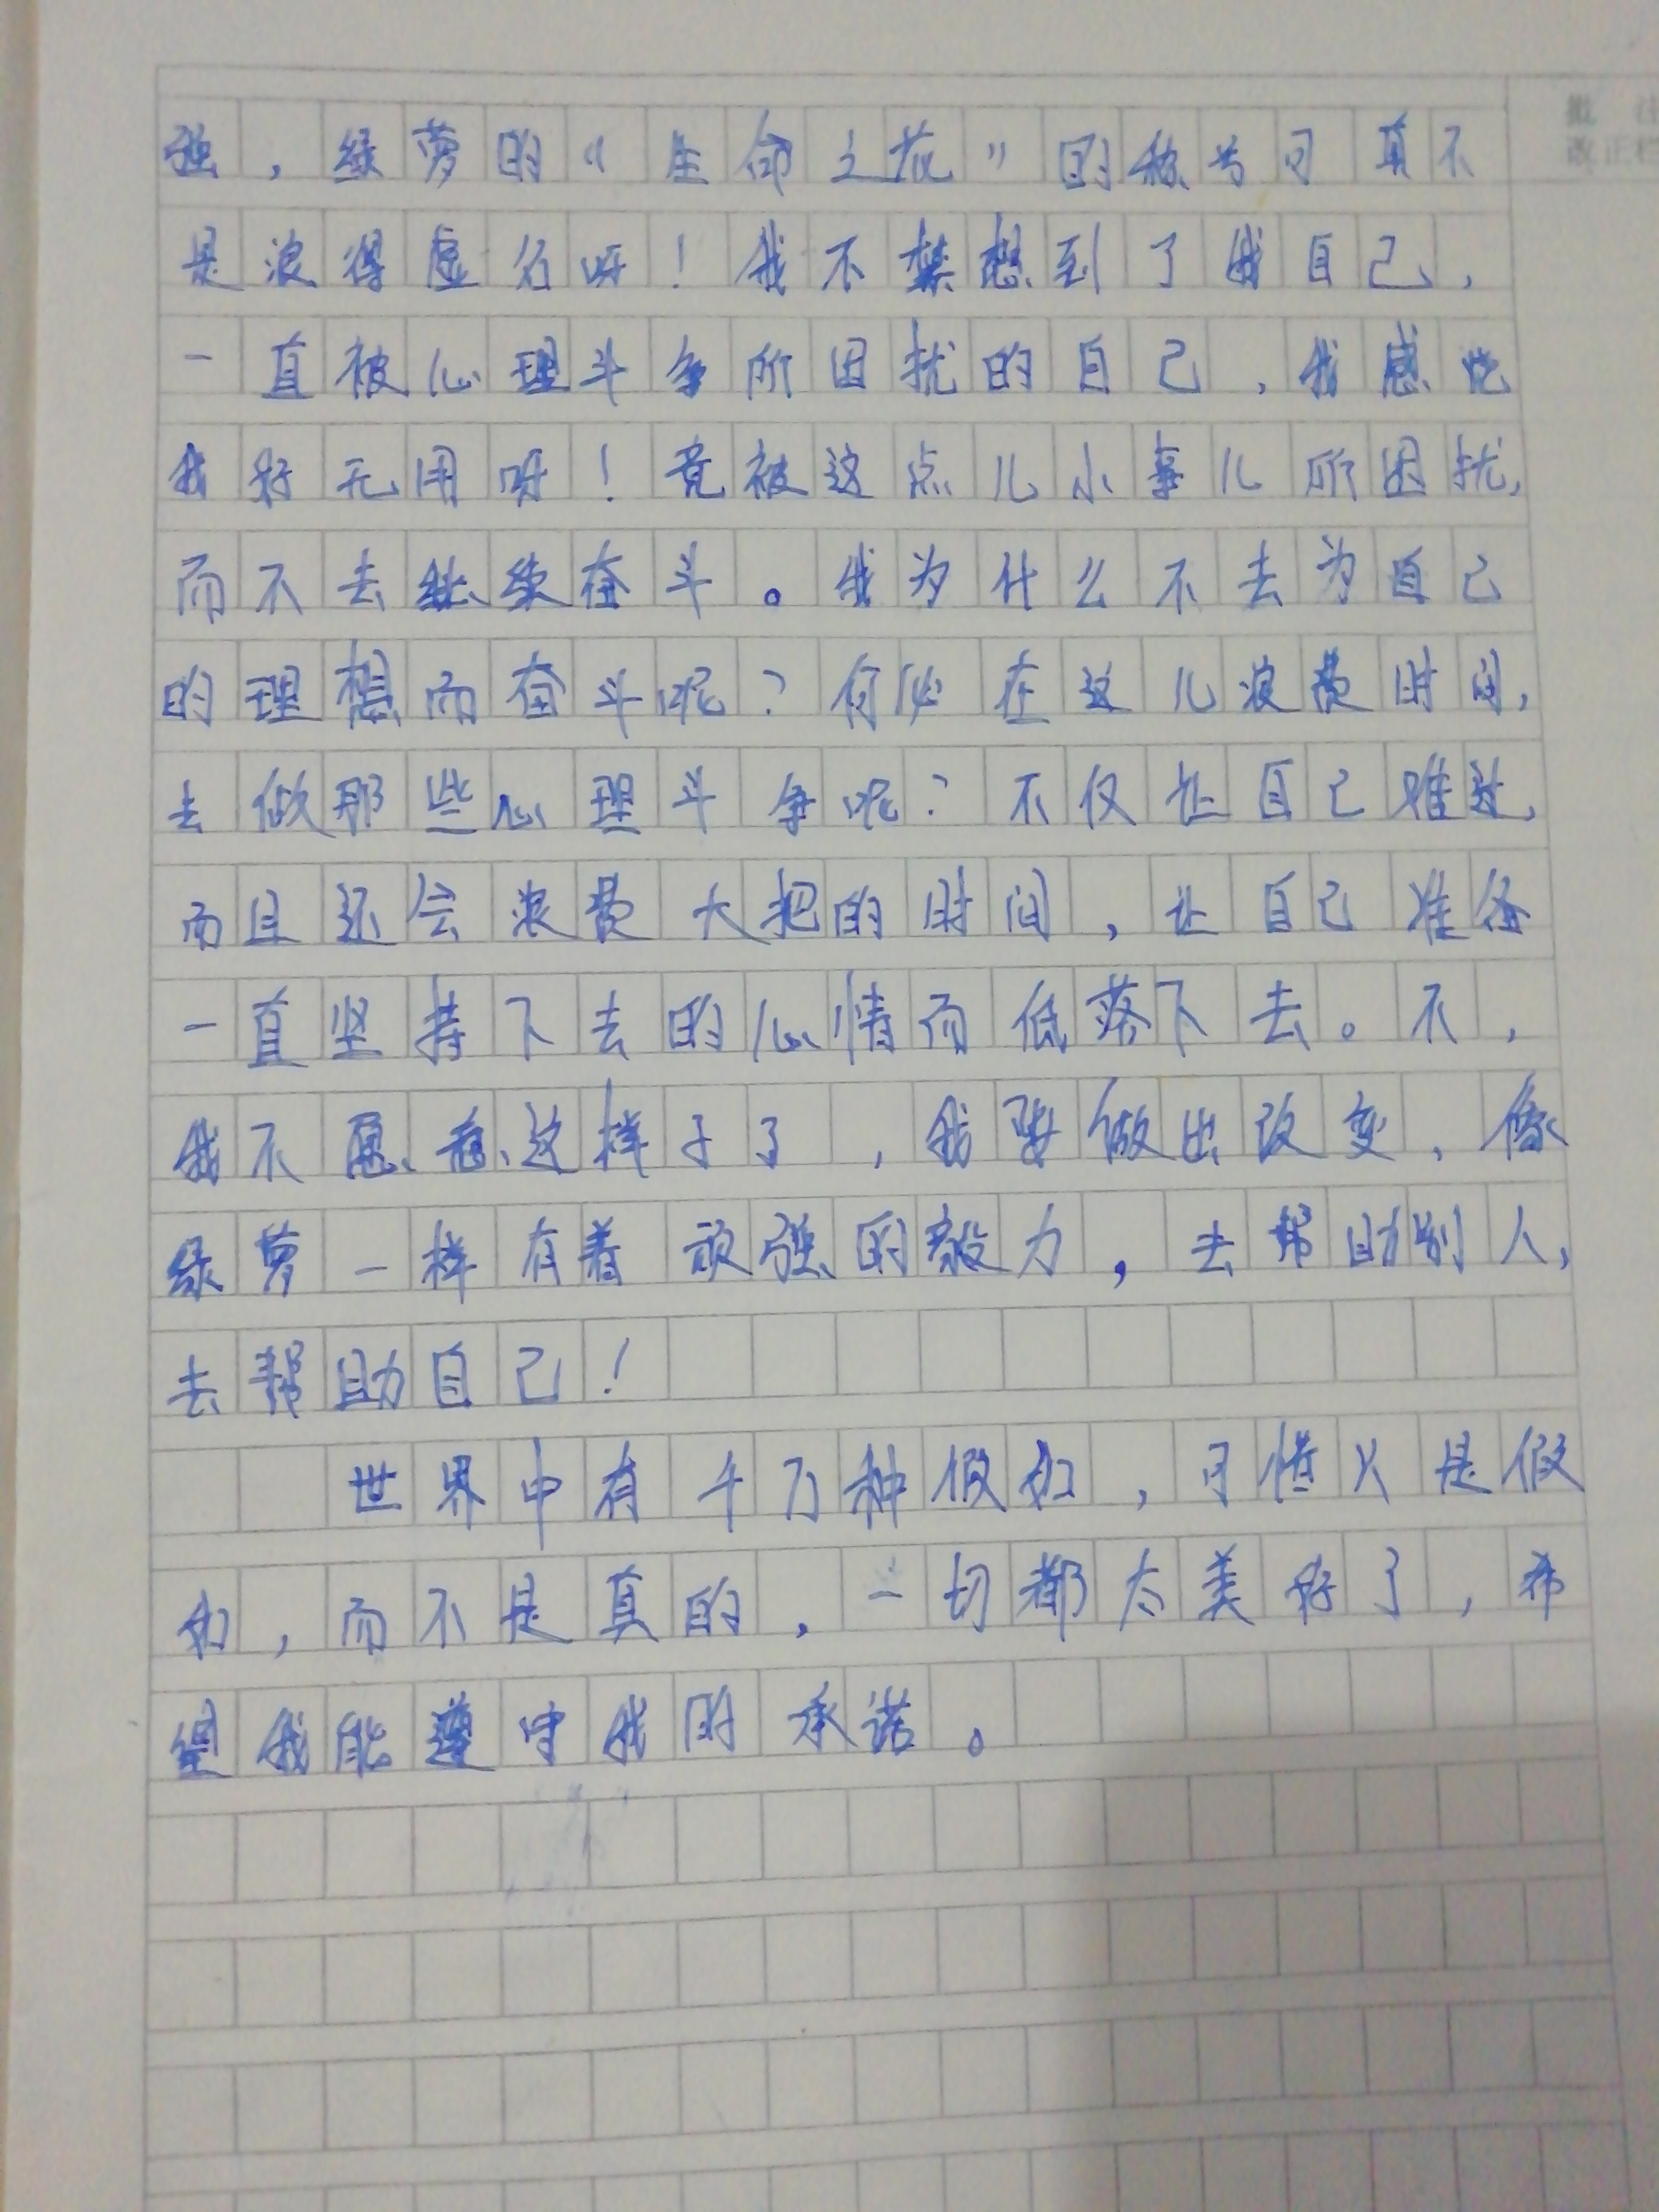 强，绿萝的“生命之花”的称号可真不
是浪得虚名呀！我不禁想到了我自己，
一直被心理斗争所困扰的自己，我感觉
我好无用呀！竟被这点儿小事儿所困扰，
而不去继续奋斗。我为什么不去为自己
的理想而奋斗呢？何必在这儿浪费时间，
去做那些心理斗争呢？不仅让自己难过，
而且还会浪费大把的时间，让自己准备
一直坚持下去的心情而低落下去。不，
我不愿意这样子了，我要做出改变，像
绿萝一样有着顽强的毅力，去帮助别人，
去帮助自己！
世界中有千万种假如，可惜又是假
如，而不是真的，一切都太美好了，希
望我能遵守我的承诺。
批 注
改正栏